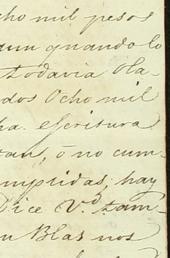 cho mil pesos
aun quando lo
todavia Ola-
dos Ocho mil
ha. escritura
tan, ō no cum-
mplidas; hay
Dice Vd. tam-
n Blas nos